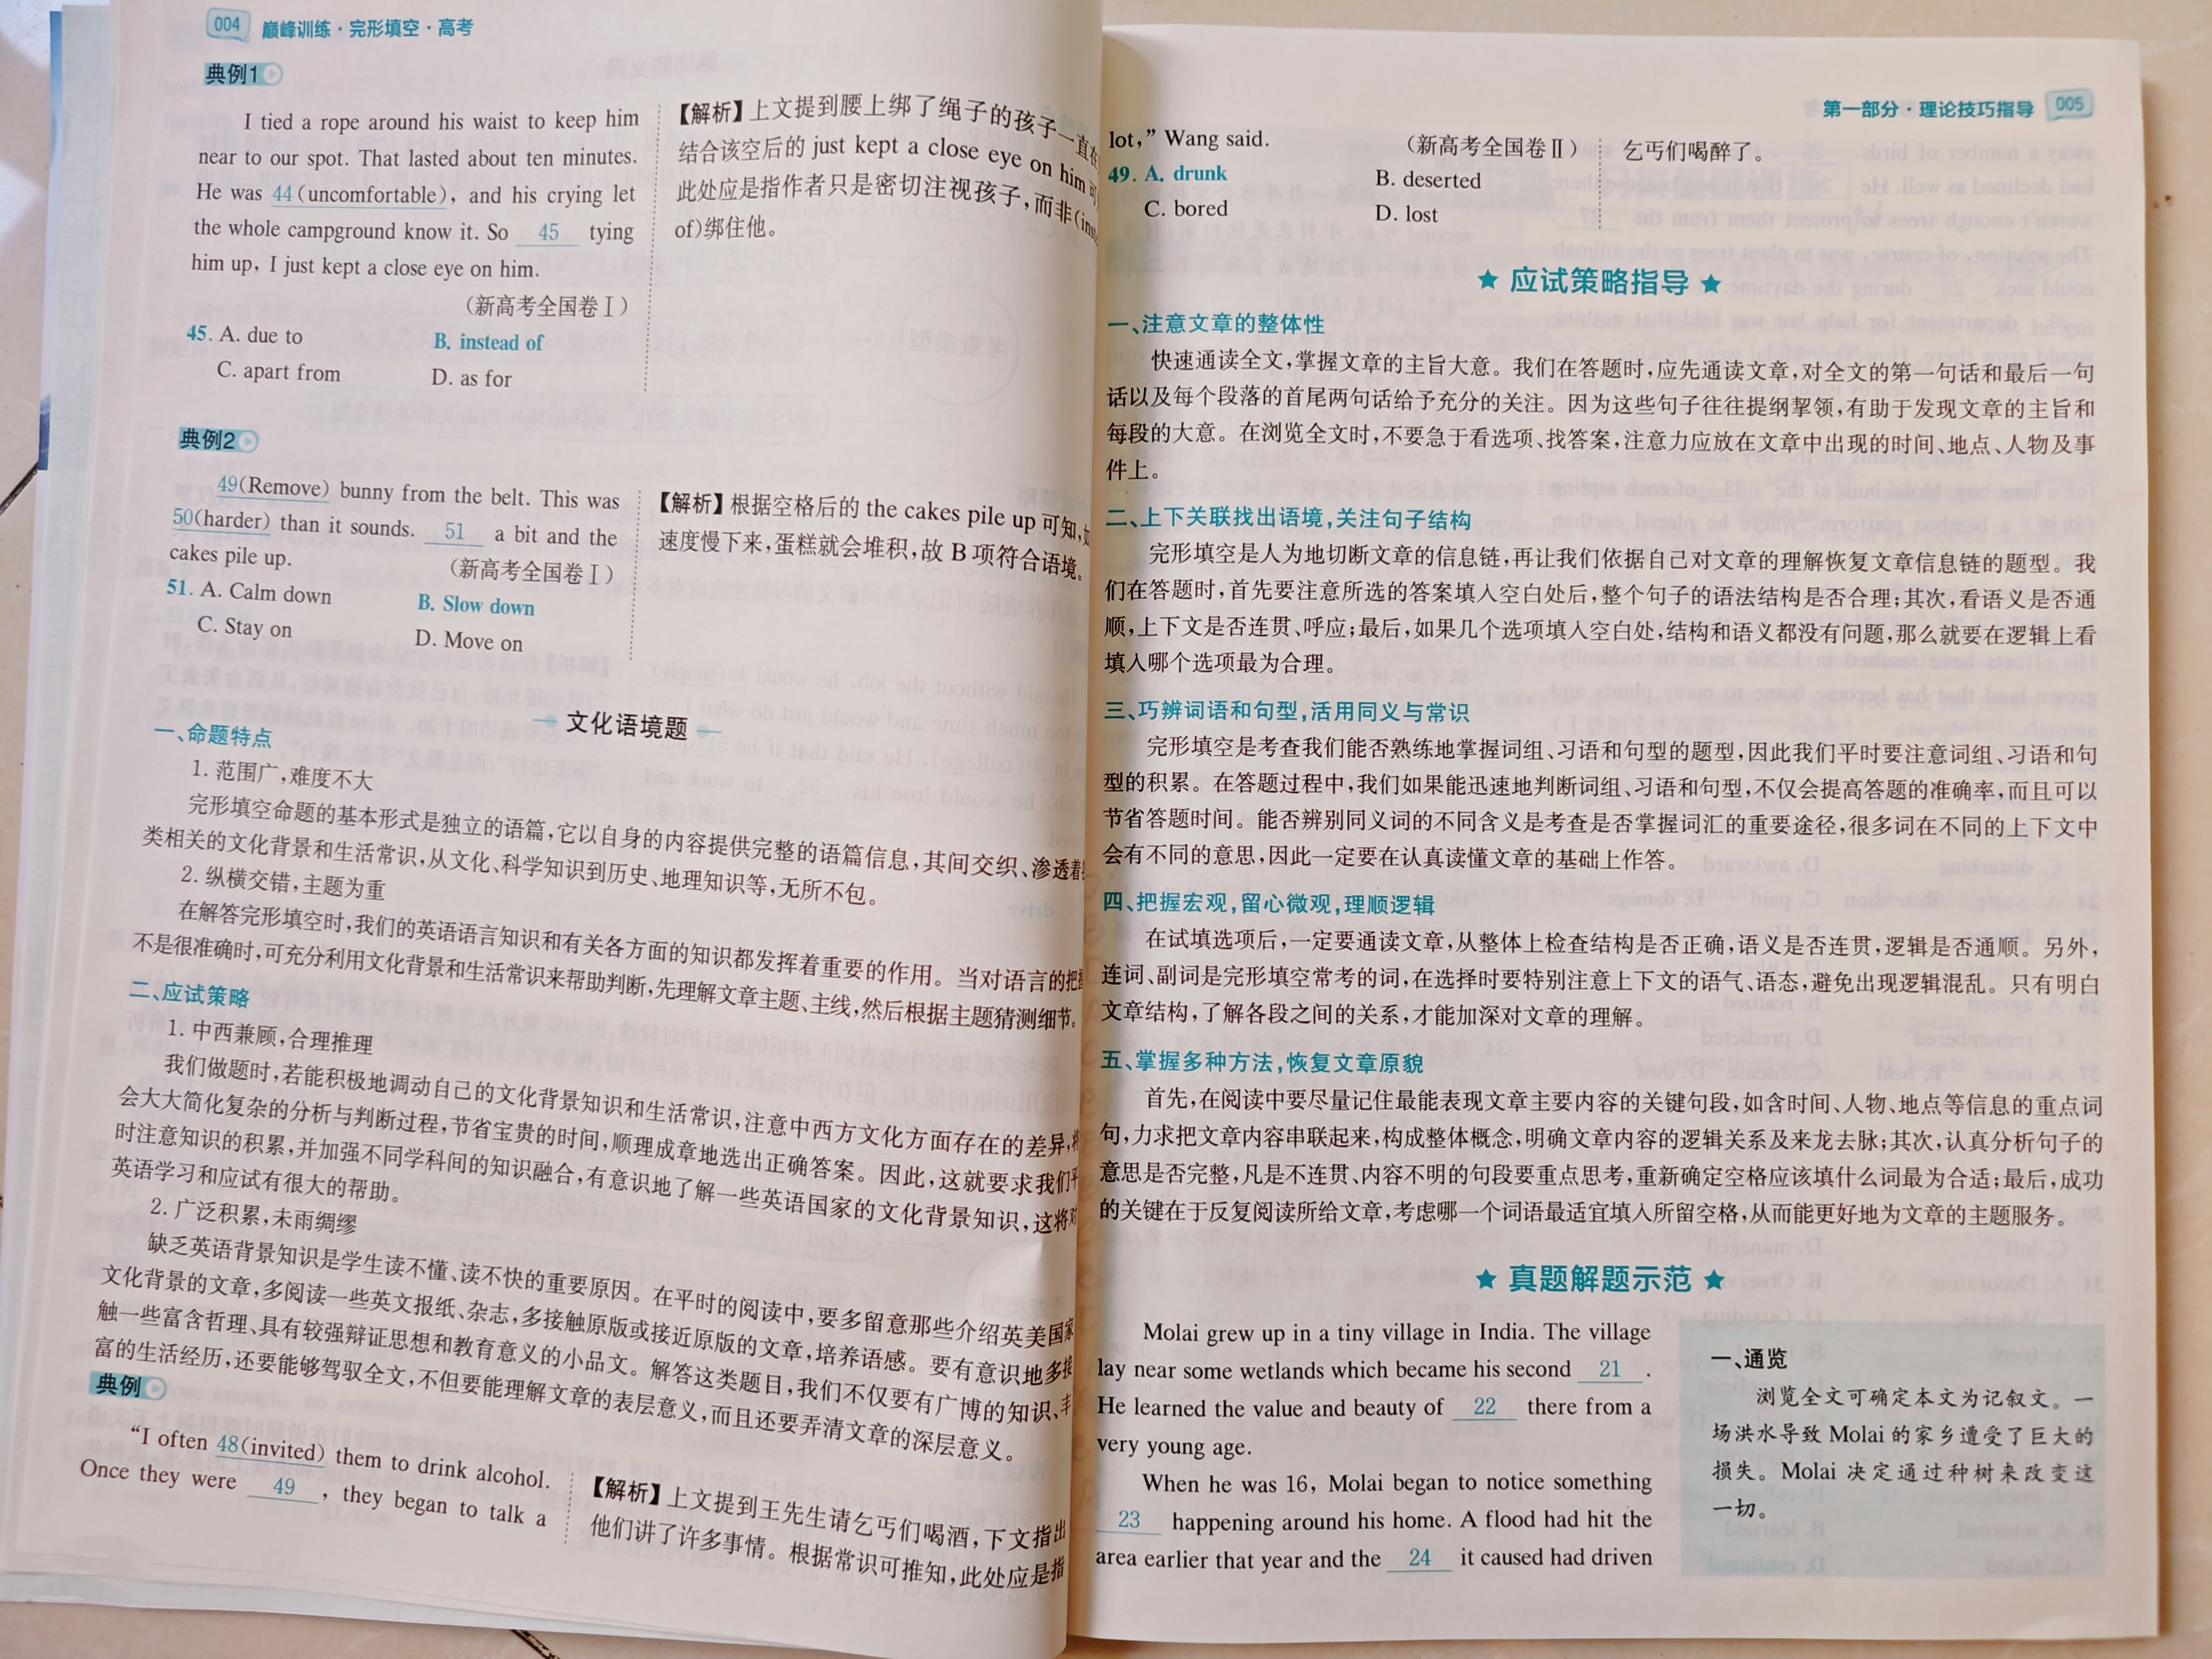 004 巅峰训练·完形填空·高考
典例1
I tied a rope around his waist to keep him
near to our spot. That lasted about ten minutes.
He was 44(uncomfortable), and his crying let
the whole campground know it. So 45 tying
him up, I just kept a close eye on him.
(新高考全国卷Ⅰ)
45. A. due to B. instead of
C. apart from D. as for
【解析】上文提到腰上绑了绳子的孩子一直在
结合该空后的 just kept a close eye on him 可
此处应是指作者只是密切注视孩子,而非(inst
of)绑住他。
典例2
49(Remove) bunny from the belt. This was
50(harder) than it sounds. 51 a bit and the
cakes pile up. (新高考全国卷Ⅰ)
51. A. Calm down B. Slow down
C. Stay on D. Move on
【解析】根据空格后的 the cakes pile up 可知,如
速度慢下来,蛋糕就会堆积,故 B 项符合语境。
文化语境题
一、命题特点
1. 范围广,难度不大
完形填空命题的基本形式是独立的语篇,它以自身的内容提供完整的语篇信息,其间交织、渗透着
类相关的文化背景和生活常识,从文化、科学知识到历史、地理知识等,无所不包。
2. 纵横交错,主题为重
在解答完形填空时,我们的英语语言知识和有关各方面的知识都发挥着重要的作用。当对语言的把握
不是很准确时,可充分利用文化背景和生活常识来帮助判断,先理解文章主题、主线,然后根据主题猜测细节。
二、应试策略
1. 中西兼顾,合理推理
我们做题时,若能积极地调动自己的文化背景知识和生活常识,注意中西方文化方面存在的差异,将
会大大简化复杂的分析与判断过程,节省宝贵的时间,顺理成章地选出正确答案。因此,这就要求我们平
时注意知识的积累,并加强不同学科间的知识融合,有意识地了解一些英语国家的文化背景知识,这将对
英语学习和应试有很大的帮助。
2. 广泛积累,未雨绸缪
缺乏英语背景知识是学生读不懂、读不快的重要原因。在平时的阅读中,要多留意那些介绍英美国家
文化背景的文章,多阅读一些英文报纸、杂志,多接触原版或接近原版的文章,培养语感。要有意识地多接
触一些富含哲理、具有较强辩证思想和教育意义的小品文。解答这类题目,我们不仅要有广博的知识、丰
富的生活经历,还要能够驾驭全文,不但要能理解文章的表层意义,而且还要弄清文章的深层意义。
典例
“I often 48(invited) them to drink alcohol.
Once they were 49 , they began to talk a
【解析】上文提到王先生请乞丐们喝酒,下文指出
他们讲了许多事情。根据常识可推知,此处应是指
第一部分·理论技巧指导 005
lot,” Wang said. (新高考全国卷Ⅱ)
49. A. drunk B. deserted
C. bored D. lost
乞丐们喝醉了。
★ 应试策略指导 ★
一、注意文章的整体性
快速通读全文,掌握文章的主旨大意。我们在答题时,应先通读文章,对全文的第一句话和最后一句
话以及每个段落的首尾两句话给予充分的关注。因为这些句子往往提纲挈领,有助于发现文章的主旨和
每段的大意。在浏览全文时,不要急于看选项、找答案,注意力应放在文章中出现的时间、地点、人物及事
件上。
二、上下关联找出语境,关注句子结构
完形填空是人为地切断文章的信息链,再让我们依据自己对文章的理解恢复文章信息链的题型。我
们在答题时,首先要注意所选的答案填入空白处后,整个句子的语法结构是否合理;其次,看语义是否通
顺,上下文是否连贯、呼应;最后,如果几个选项填入空白处,结构和语义都没有问题,那么就要在逻辑上看
填入哪个选项最为合理。
三、巧辨词语和句型,活用同义与常识
完形填空是考查我们能否熟练地掌握词组、习语和句型的题型,因此我们平时要注意词组、习语和句
型的积累。在答题过程中,我们如果能迅速地判断词组、习语和句型,不仅会提高答题的准确率,而且可以
节省答题时间。能否辨别同义词的不同含义是考查是否掌握词汇的重要途径,很多词在不同的上下文中
会有不同的意思,因此一定要在认真读懂文章的基础上作答。
四、把握宏观,留心微观,理顺逻辑
在试填选项后,一定要通读文章,从整体上检查结构是否正确,语义是否连贯,逻辑是否通顺。另外,
连词、副词是完形填空常考的词,在选择时要特别注意上下文的语气、语态,避免出现逻辑混乱。只有明白
文章结构,了解各段之间的关系,才能加深对文章的理解。
五、掌握多种方法,恢复文章原貌
首先,在阅读中要尽量记住最能表现文章主要内容的关键句段,如含时间、人物、地点等信息的重点词
句,力求把文章内容串联起来,构成整体概念,明确文章内容的逻辑关系及来龙去脉;其次,认真分析句子的
意思是否完整,凡是不连贯、内容不明的句段要重点思考,重新确定空格应该填什么词最为合适;最后,成功
的关键在于反复阅读所给文章,考虑哪一个词语最适宜填入所留空格,从而能更好地为文章的主题服务。
★ 真题解题示范 ★
Molai grew up in a tiny village in India. The village
lay near some wetlands which became his second 21 .
He learned the value and beauty of 22 there from a
very young age.
When he was 16, Molai began to notice something
23 happening around his home. A flood had hit the
area earlier that year and the 24 it caused had driven
一、通览
浏览全文可确定本文为记叙文。一
场洪水导致 Molai 的家乡遭受了巨大的
损失。Molai 决定通过种树来改变这
一切。